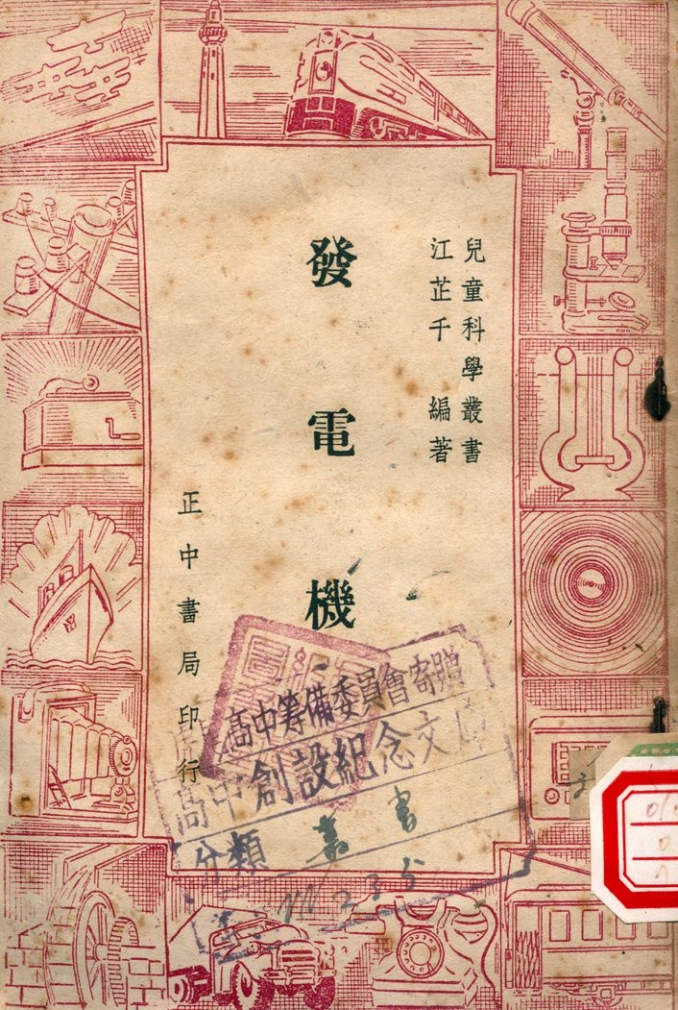 兒童科學叢書
江芷千 編著
發電機
正中書局印行
高中籌備委員會寄贈
高中創設紀念文庫
分類 叢書